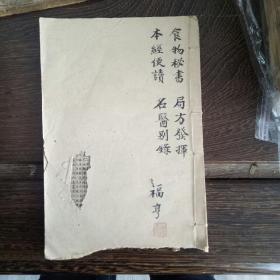 食物秘書 局方發揮
本經便讀 名醫別錄
福亨